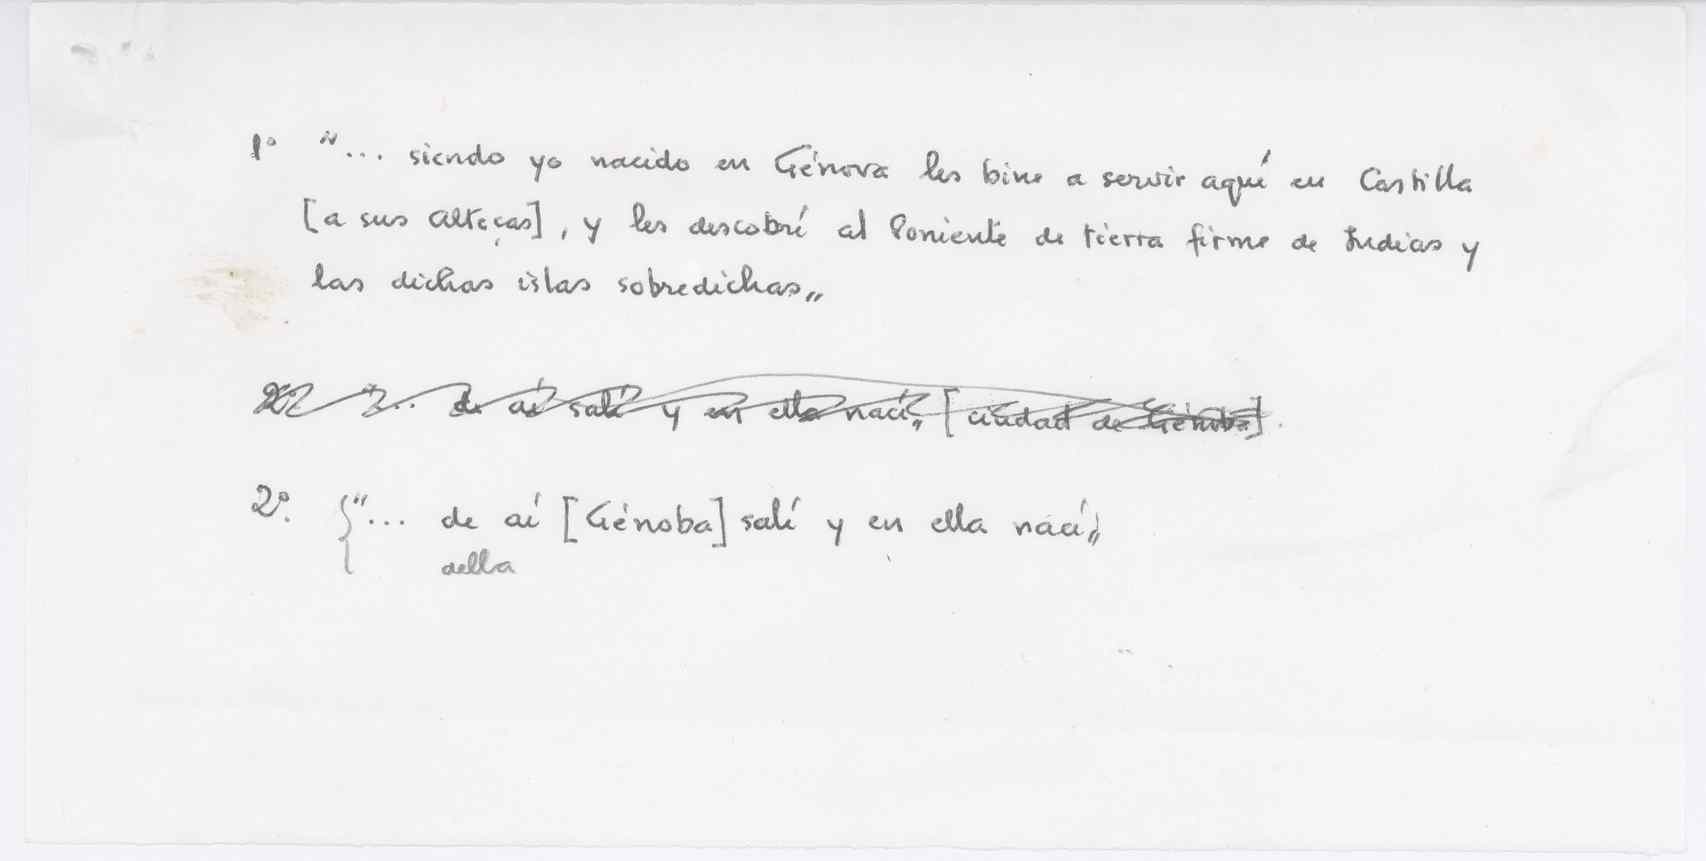 1º "... siendo yo nacido en Génova les bine a servir aquí en Castilla
[a sus alteças], y les descobrí al Poniente de tierra firme de Indias y
las dichas islas sobredichas"
2º "... de aí salí y en ella nací" [ciudad de Génoba].
2º. {"... de aí [Génoba] salí y en ella nací"
della